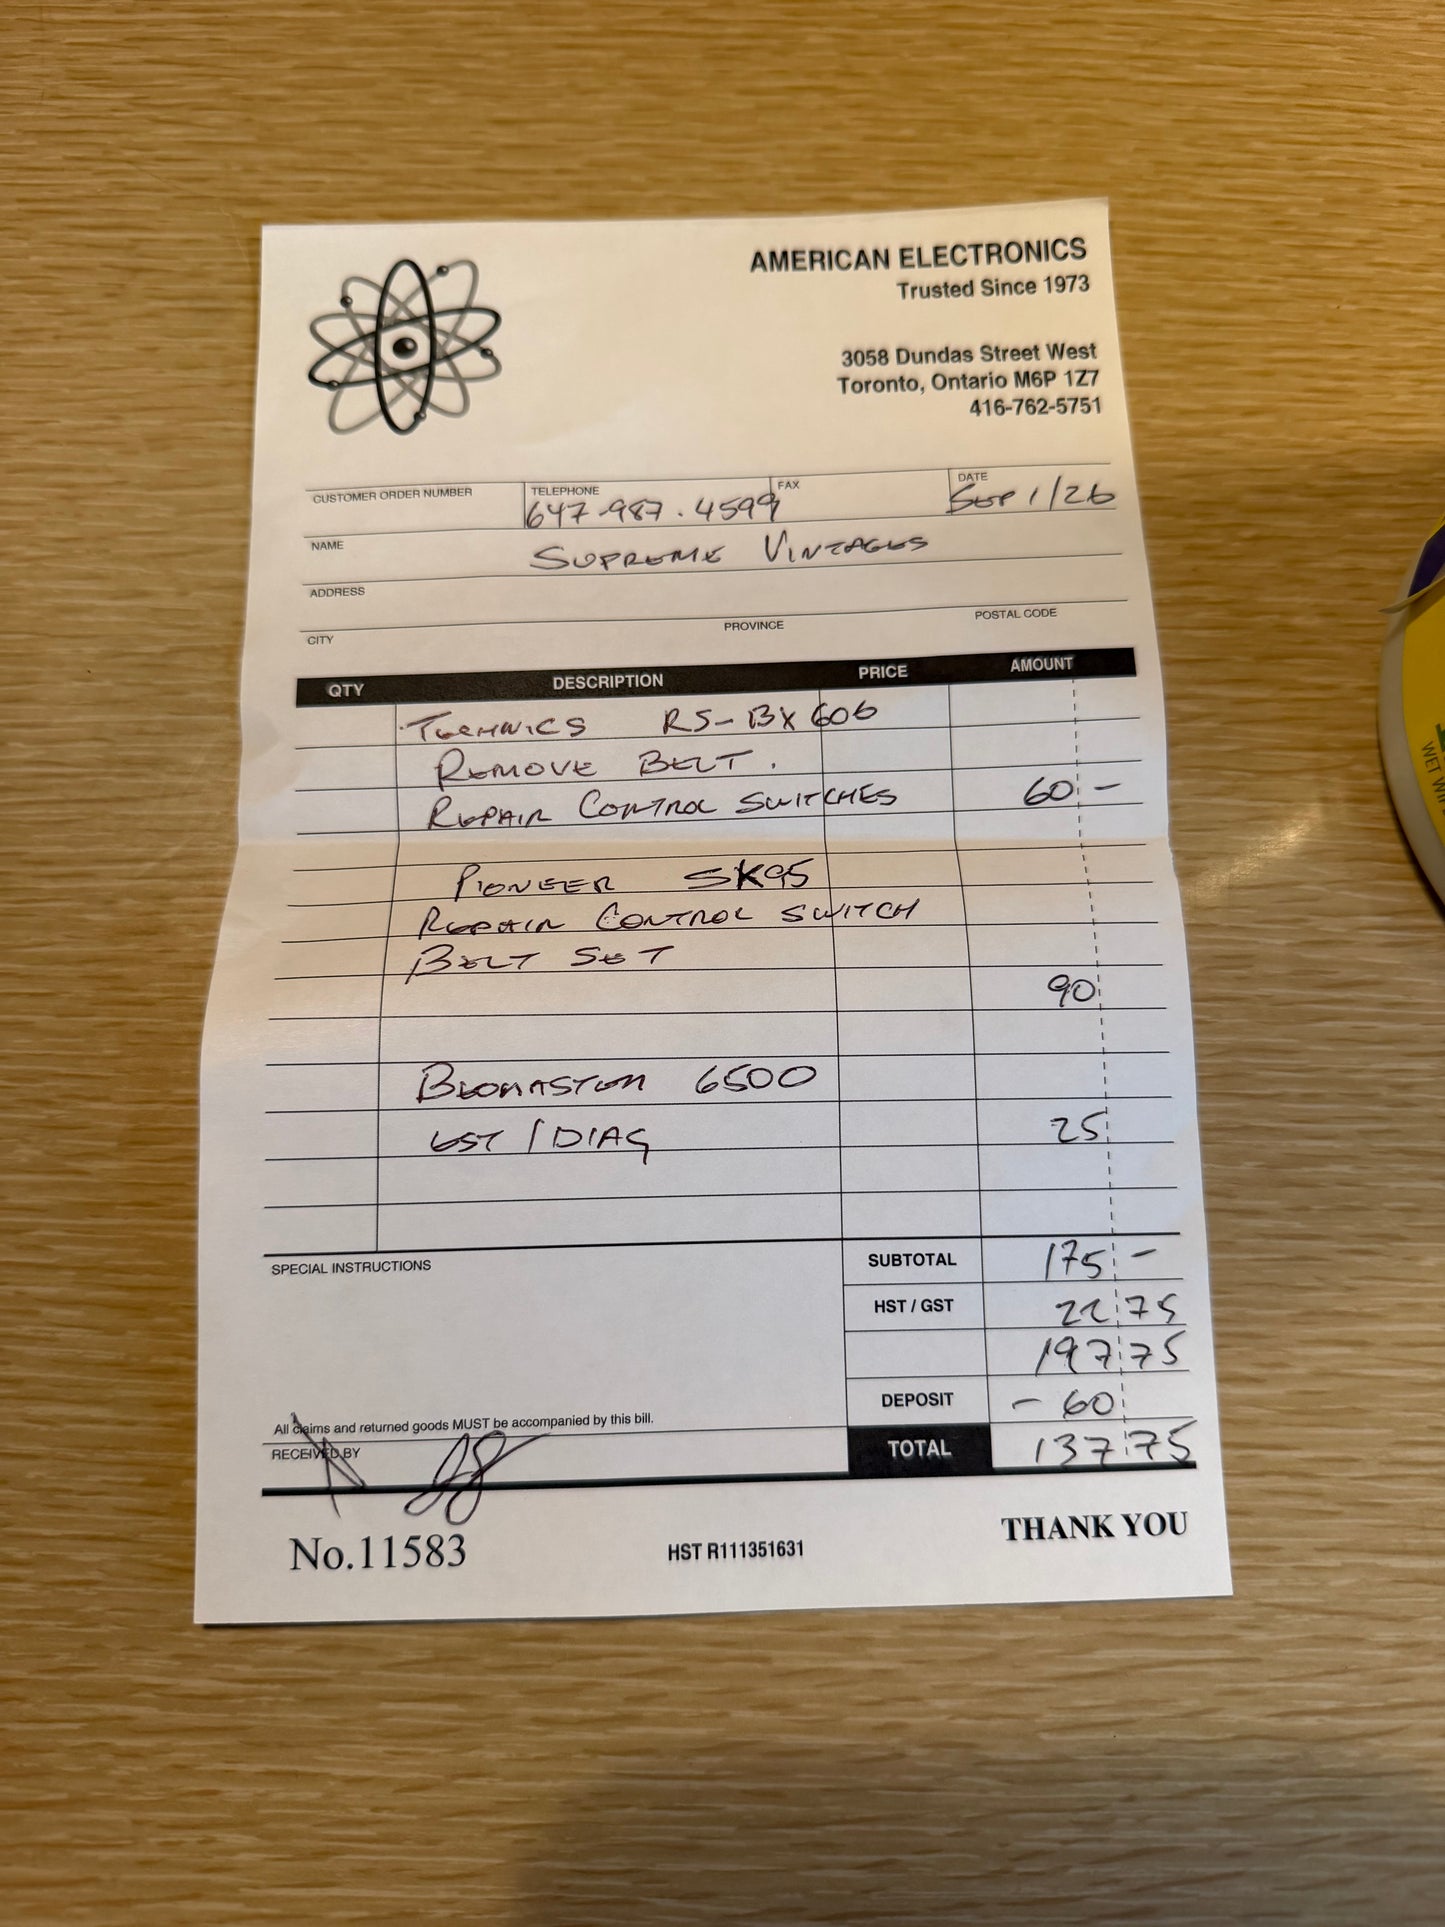 AMERICAN ELECTRONICS
Trusted Since 1973
3058 Dundas Street West
Toronto, Ontario M6P 1Z7
416-762-5751
CUSTOMER ORDER NUMBER TELEPHONE FAX DATE
647-987.4599 SEP 1/26
NAME SUPREME VINTAGES
ADDRESS
CITY PROVINCE POSTAL CODE
QTY DESCRIPTION PRICE AMOUNT
TECHNICS RS-BX606
REMOVE BELT.
REPAIR CONTROL SWITCHES 60 -
PIONEER SK95
REPAIR CONTROL SWITCH
BELT SET
90
6500
EST / DIAG 25
SUBTOTAL 175 -
HST / GST 22 75
197 75
DEPOSIT - 60
TOTAL 137 75
SPECIAL INSTRUCTIONS
All claims and returned goods MUST be accompanied by this bill.
RECEIVED BY
No.11583 HST R111351631 THANK YOU
WET WI